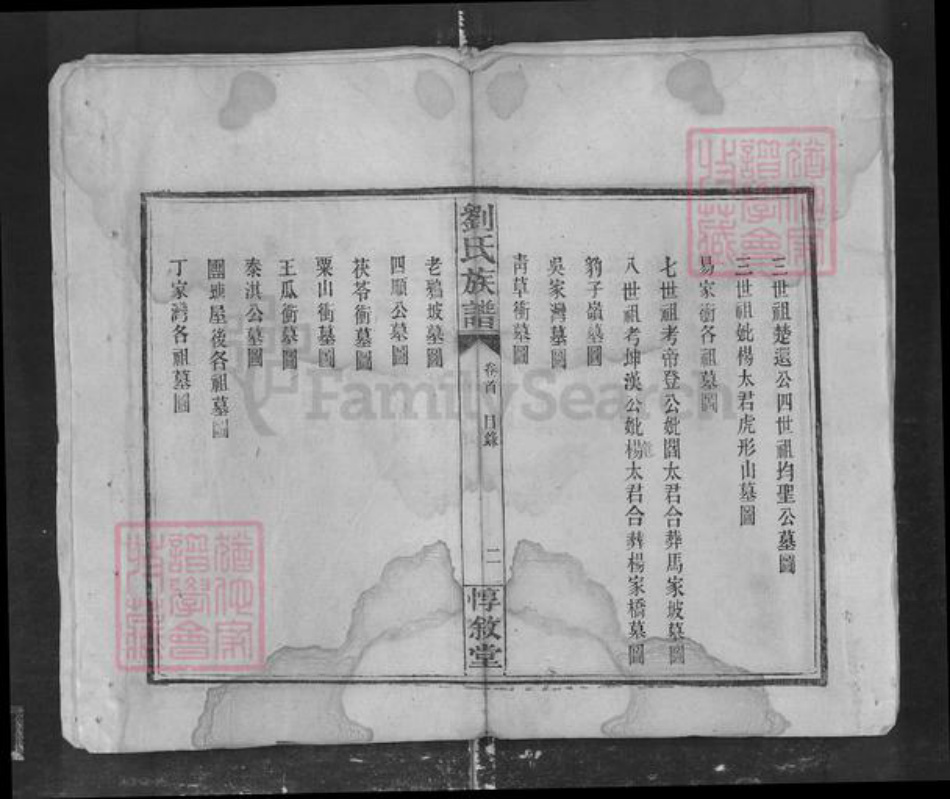 三世祖楚選公四世祖均聖公墓圖
三世祖妣楊太君虎形山墓圖
易家衝各祖墓圖
七世祖考帝登公妣閻太君合葬馬家坡墓圖
八世祖考坤漢公妣楊太君合葬楊家橋墓圖
豹子嶺墓圖
吳家灣墓圖
靑草衝墓圖
劉氏族譜
卷首 目錄
二
惇敘堂
老鴉坡墓圖
四順公墓圖
茯苓衝墓圖
粟山衝墓圖
王瓜衝墓圖
泰淇公墓圖
團屋後各祖墓圖
丁家灣各祖墓圖
FamilySearch
猶他家譜學會收藏
猶他家譜學會收藏